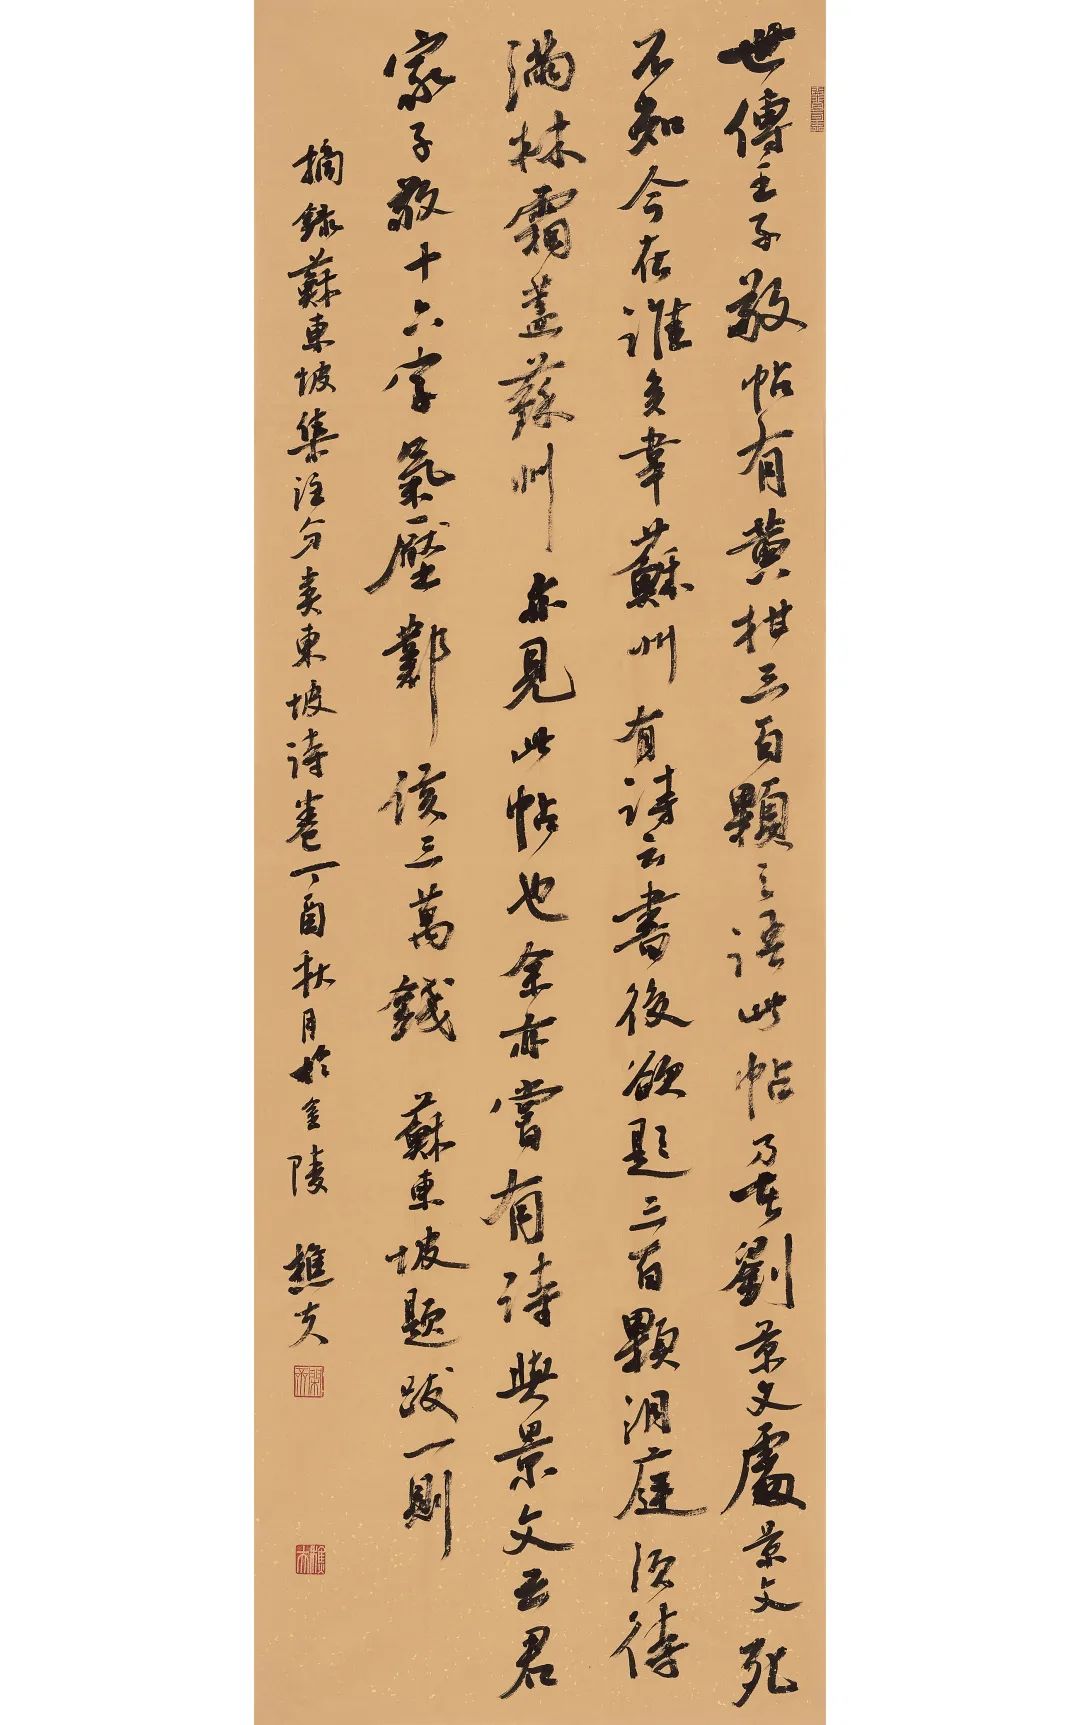 世傳王子敬帖有黃柑三百顆之語此帖乃在劉景文處景文死
不知今在誰矣韋蘇州有詩云書後欲題三百顆洞庭須待
滿林霜蓋蘇州亦見此帖也余亦嘗有詩與景文云君
家子敬十六字氣壓鄴侯三萬錢 蘇東坡題跋一則
摘錄蘇東坡集注分类東坡詩卷丁酉秋月於金陵 樵夫